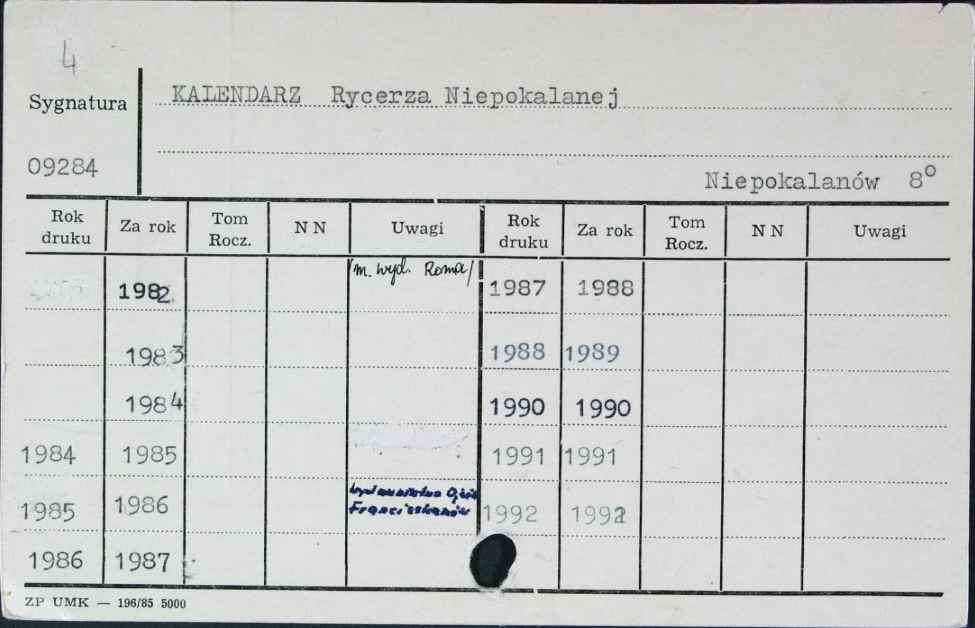 4
Sygnatura KALENDARZ Rycerza Niepokalanej
09284
Niepokalanów 8°
Rok druku Za rok Tom Rocz. N N Uwagi Rok druku Za rok Tom Rocz. N N Uwagi
1982 /m. wyd. Roma/ 1987 1988
1983 1988 1989
1984 1990 1990
1984 1985 1991 1991
1985 1986 Wydawnictwo Ojców 1992 1992
Franciszkanów
1986 1987
ZP UMK — 196/85 5000